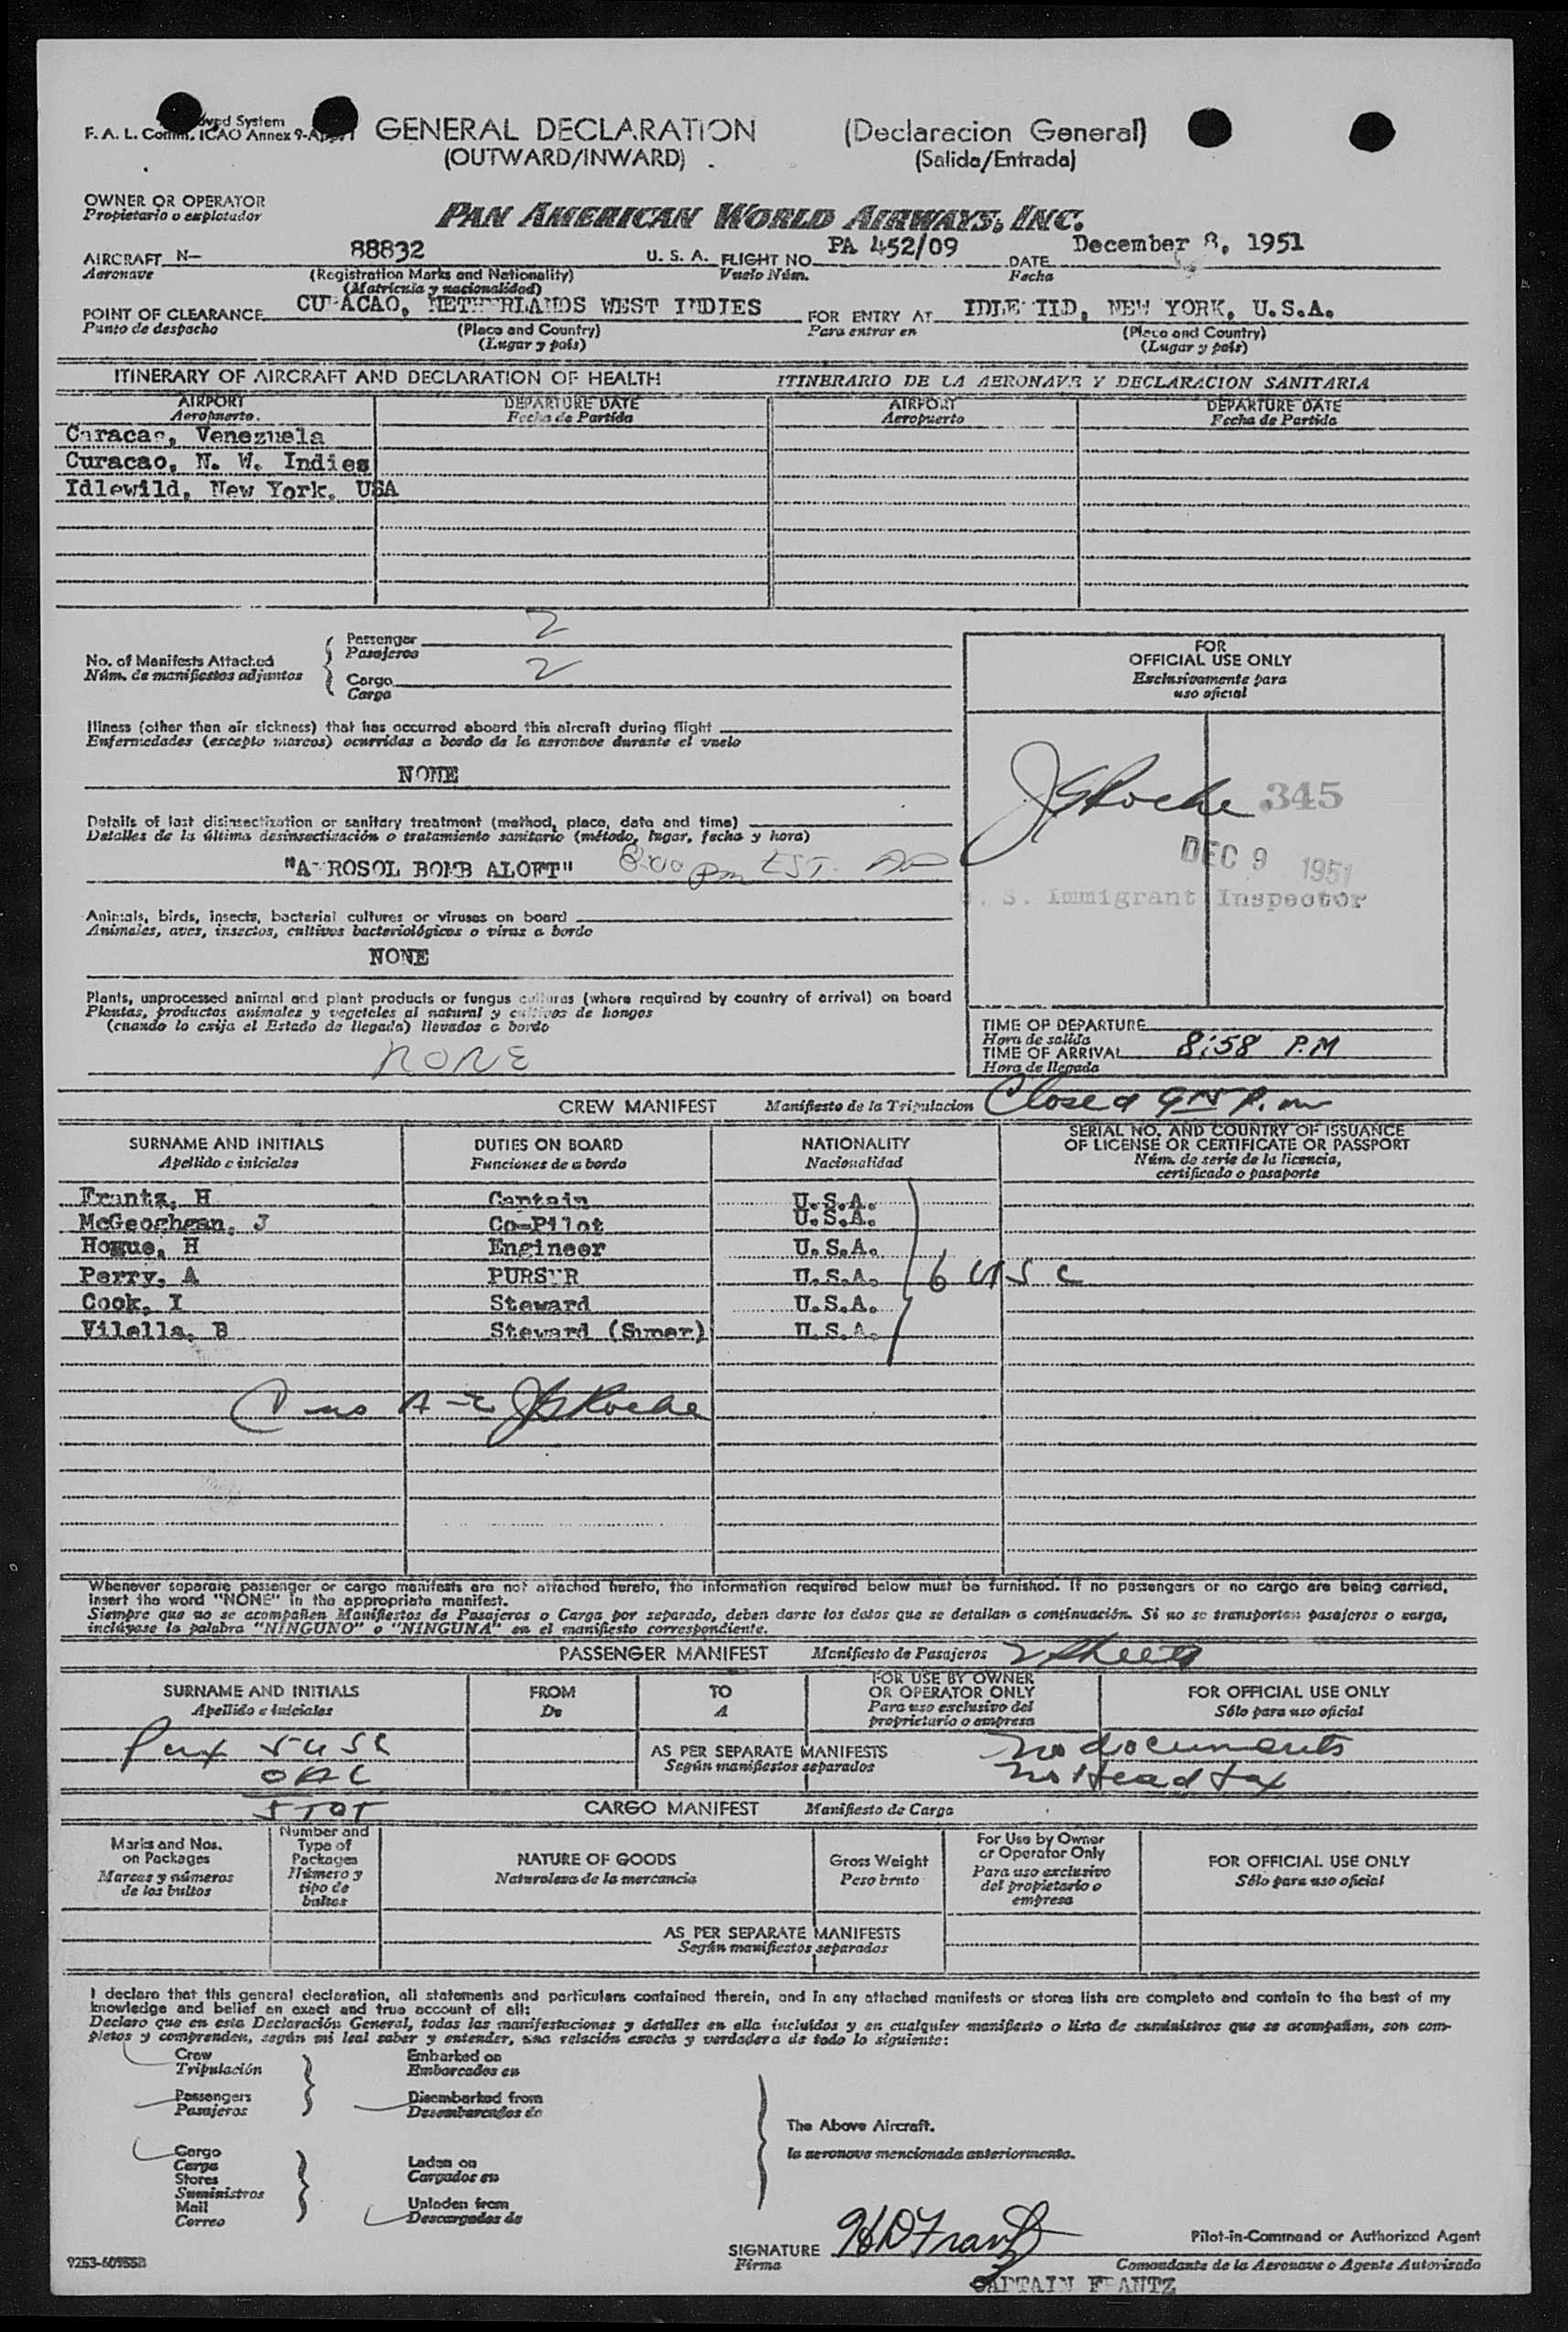 oved System
F. A. L. Comm. ICAO Annex 9-Ap
GENERAL DECLARATION (Declaracion General)
(OUTWARD/INWARD) (Salida/Entrada)
OWNER OR OPERATOR
Propietario o explotador
PAN AMERICAN WORLD AIRWAYS, INC.
AIRCRAFT N- 88832 U. S. A. FLIGHT NO. PA 452/09 DATE December 8, 1951
Aeronave (Registration Marks and Nationality) Vuelo Núm. Fecha
(Matricula y nacionalidad)
POINT OF CLEARANCE CU ACAO, NETHERLANDS WEST INDIES FOR ENTRY AT IDLE ILD, NEW YORK, U.S.A.
Punto de despacho (Place and Country) Para entrar en (Place and Country)
(Lugar y país) (Lugar y país)
ITINERARY OF AIRCRAFT AND DECLARATION OF HEALTH ITINERARIO DE LA AERONAVE Y DECLARACION SANITARIA
AIRPORT DEPARTURE DATE AIRPORT DEPARTURE DATE
Aeropuerto. Fecha de Partida Aeropuerto Fecha de Partida
Caracas, Venezuela
Curacao, N. W. Indies
Idlewild, New York, USA
No. of Manifests Attached
Núm. de manifiestos adjuntos
Passenger 2
Pasajeros
Cargo 2
Carga
FOR
OFFICIAL USE ONLY
Exclusivamente para
uso oficial
Illness (other than air sickness) that has occurred aboard this aircraft during flight
Enfermedades (excepto mareos) ocurridas a bordo de la aeronave durante el vuelo
NONE
Details of last disinsectization or sanitary treatment (method, place, date and time)
Detalles de la última desinsectización o tratamiento sanitario (método, lugar, fecha y hora)
"A ROSOL BOMB ALOFT" 8:00 pm EST.
JGRoche 345
DEC 9 1951
. S. Immigrant Inspector
Animals, birds, insects, bacterial cultures or viruses on board
Animales, aves, insectos, cultivos bacteriológicos o virus a bordo
NONE
Plants, unprocessed animal and plant products or fungus cultures (where required by country of arrival) on board
Plantas, productos animales y vegeteles al natural y cultivos de hongos
(cuando lo exija el Estado de llegada) llevados a bordo
NONE
TIME OF DEPARTURE
Hora de salida
TIME OF ARRIVAL 8:58 P.M
Hora de llegada
CREW MANIFEST Manifiesto de la Tripulacion Closed 915 P.m
SURNAME AND INITIALS DUTIES ON BOARD NATIONALITY SERIAL NO. AND COUNTRY OF ISSUANCE
OF LICENSE OR CERTIFICATE OR PASSPORT
Apellido e iniciales Funciones de a bordo Nacionalidad Núm. de serie de la licencia,
certificado o pasaporte
Frantz, H Captain U.S.A.
McGeoghean, J Co-Pilot U.S.A.
Hogue, H Engineer U.S.A.
Perry, A PURS R U.S.A. 6 US C
Cook, I Steward U.S.A.
Vilella, B Steward (Sumer) U.S.A.
JGRoche
Whenever separate passenger or cargo manifests are not attached hereto, the information required below must be furnished. If no passengers or no cargo are being carried,
insert the word "NONE" in the appropriate manifest.
Siempre que no se acompañen Manifiestos de Pasajeros o Carga por separado, deben darse los datos que se detallan a continuación. Si no se transportan pasajeros o carga,
inclúyase la palabra "NINGUNO" o "NINGUNA" en el manifiesto correspondiente.
PASSENGER MANIFEST Manifiesto de Pasajeros 2 sheets
SURNAME AND INITIALS FROM TO FOR USE BY OWNER
OR OPERATOR ONLY FOR OFFICIAL USE ONLY
Apellido e iniciales De A Para uso exclusivo del
proprietario o empresa Sólo para uso oficial
Pax 5 USC AS PER SEPARATE MANIFESTS no documents
Según manifiestos separados
0 AC no Head tax
5 TOT
CARGO MANIFEST Manifiesto de Carga
Marks and Nos.
on Packages
Marcas y números
de los bultos
Number and
Type of
Packages
Número y
tipo de
bultos
NATURE OF GOODS
Naturaleza de la mercancía
Gross Weight
Peso bruto
For Use by Owner
or Operator Only
Para uso exclusivo
del propietario o
empresa
FOR OFFICIAL USE ONLY
Sólo para uso oficial
AS PER SEPARATE MANIFESTS
Según manifiestos separados
I declare that this general declaration, all statements and particulars contained therein, and in any attached manifests or stores lists are complete and contain to the best of my
knowledge and belief an exact and true account of all:
Declaro que en esta Declaración General, todas las manifestaciones y detalles en ella incluidos y en cualquier manifiesto o lista de suministros que se acompañen, son com-
pletos y comprenden, según mi leal saber y entender, una relación exacta y verdadera de todo lo siguiente:
Crew Embarked on
Tripulación Embarcados en
Passengers Disembarked from
Pasajeros Desembarcados de
The Above Aircraft.
la aeronave mencionada anteriormente.
Cargo
Carga Laden on
Stores Cargados en
Suministros
Mail Unladen from
Correo Descargados de
SIGNATURE HDFrantz Pilot-in-Command or Authorized Agent
Firma Comandante de la Aeronave o Agente Autorizado
9253-60955B
CAPTAIN F ANTZ